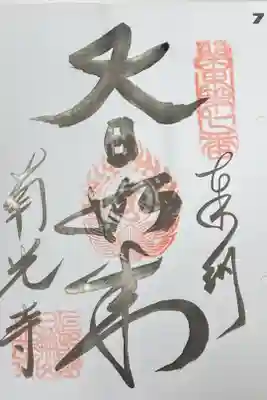 7
奉納
大日如来
南光寺